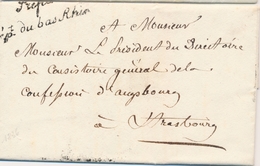 Préf
ép.t du bas Rhin
A Monsieur
Monsieur Le Président du Directoire
du Consistoire général de la
Confession d'augsbourg
à Strasbourg